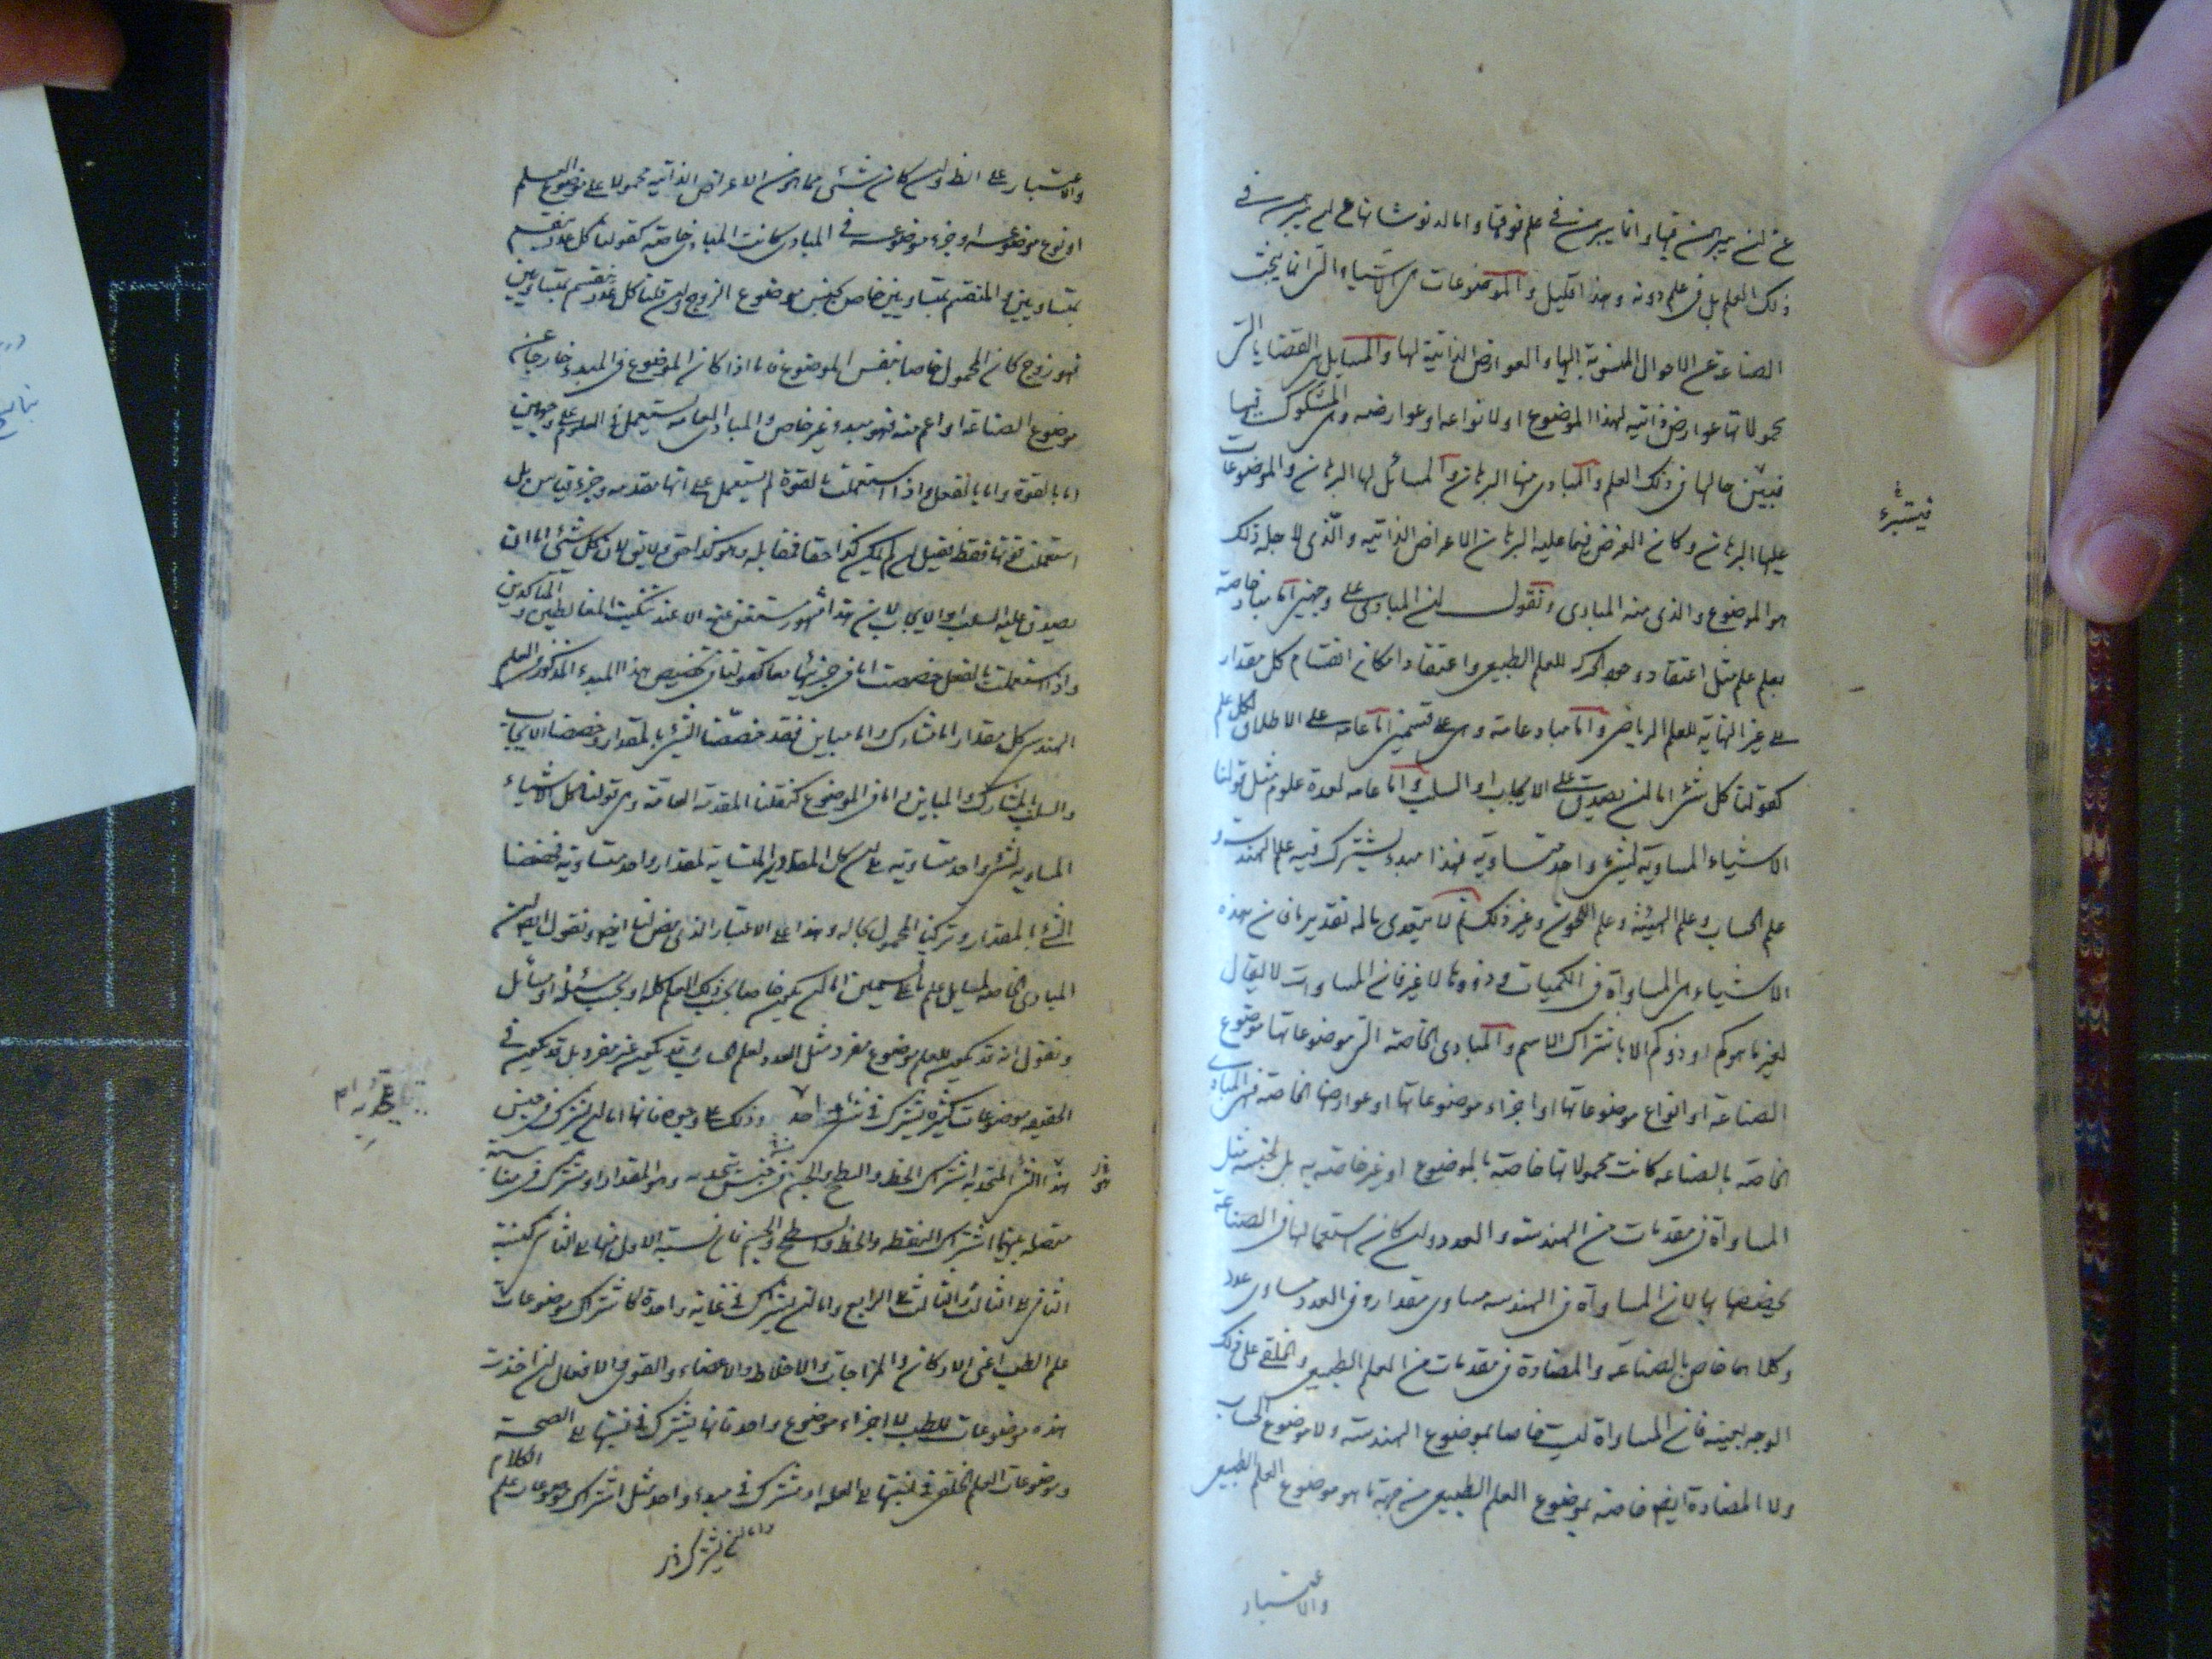 عن ان يبرهن فيها وانما يبرهن في علم فوقها واما لدنو شانها عن ان يبرهن في
ذلك العلم بل في علم دونه وهذا قليل والموضوعات هي الاشياء التي انما يبحث
الصناعة عن الاحوال المنسوبة اليها والعوارض الذاتية لها والمسايل هي القضايا التي
محمولاتها عوارض ذاتيه لهذا الموضوع او لانواعه او عوارضه وهي المشكوك فيها
فيبين حالها في ذلك العلم والمبادي منها البرهان والمسائل لها البرهان والموضوعات
عليها البرهان وكان الغرض فيما عليه البرهان الاعراض الذاتيه والذي لاجله ذلك
هو الموضوع والذي منه المبادي ونقول ان المبادي على وجهين اما مباد خاصة
بعلم علم مثل اعتقاد وجود الحركة للعلم الطبيعي واعتقاد امكان انقسام كل مقدار
الى غير النهاية للعلم الرياضي واما مباد عامة وهي على قسمين اما عامه على الاطلاق لكل علم
كقولنا كل شئ اما ان يصدق عليه الايجاب او السلب واما عامه لعدة علوم مثل قولنا
الاشياء المساوية لشئ واحد متساوية فهذا مبدء يشترك فيه علم الهندسة و
علم الحساب وعلم الهيئة وعلم اللحون وغير ذلك ثم لا يتعدى ماله تقدير ما فان هذه
الاشياء هي المساواة في الكميات وذوها لا غير فان المساوات لا يقال
لغير ما هو كم او ذو كم الا باشتراك الاسم والمبادي الخاصة التي موضوعاتها موضوع
الصناعة او انواع موضوعاتها او اجزاء موضوعاتها او عوارضها الخاصة فهي المبادي
الخاصة بالصناعه كانت محمولاتها خاصة بالموضوع او غير خاصة به بل لجنسه مثل
المساواة في مقدمات من الهندسة والعدد وان كان استعمالها في الصناعة
يخصصها بها لان المساواة في الهندسه مساوي مقدار وفي العدد مساوي عدد
وكلاهما خاص بالصناعة والمضادة في مقدمات من العلم الطبيعي والخلقي على ذلك
الوجه بعينه فان المساواة ليست خاصا بموضوع الهندسة ولا موضوع الحساب
ولا المضادة ايضا خاصة بموضوع العلم الطبيعي من جهة ما هو موضوع العلم الطبيعي
والاعتبار
والاعتبار على انه وان كان شئ مما هو من الاعراض الذاتية محمولا على موضوع العلم
او نوع موضوعه او جزء موضوعه في المبادي كانت المبادي خاصة كقولنا كل عدد ينقسم
بمتساويين والمنقسم بمتساويين خاص كجنس موضوع الزوج وان قلنا كل عدد منقسم بمتساويين
فهو زوج كان المحمول خاصا بنفس الموضوع فاما اذا كان الموضوع في المبدء خارجا عن
موضوع الصناعة او اعم منه فهو مبدء غير خاص والمبادي العامه يستعمل في العلوم على وجهين
اما بالقوة واما بالفعل واذا استعملت بالقوة لم يستعمل على انها مقدمه وجزء قياس بل
استعملت قوتها فقط فقيل ان لم يكن كذا حقا فمقابله وهو كذا حق ولا يق لان كل شئ اما ان
يصدق عليه السلب او الايجاب لان هذا مشهور مستغنى عنه الا عند تبكيت المغالطين والمناكدين
واذا استعملت بالفعل خصصت اما في جزئيها معا كقولنا في تخصيص هذا المبدء المذكور في العلم
الهندسي كل مقدار اما مشارك واما مباين فقد خصصنا الشئ بالمقدار وخصصنا الايجاب
والسلب بالمشارك والمباين واما في الموضوع كنقلنا المقدمة العامة وهي قولنا كل الاشياء
المساوية لشئ واحد متساوية الى ان كل المقادير المتساوية لمقدار واحد متساوية فخصصنا
الشئ بالمقدار وتركنا المحمول بحاله وهذا على الاعتبار الذي مضى لنا ايضا ونقول ايضا ان
المبادي الخاصة لمسايل علم ما على قسمين اما ان يكون خاصا بحسب ذلك العلم كله او بحسب مسئلة او مسائل
ونقول انه قد يكون للعلم موضوع مفرد مثل العدد لعلم الحساب وقد يكون غير مفرد بل قد يكون في
الحقيقه موضوعات كثيرة يشترك في شئ واحد وذلك على وجوه فانها اما ان يشترك في جنس
هذا الشئ المتحد به اشتراك الخط والسطح والجسم في جنس يتحد به وهو المقدار او مشترك في مناسبة
متصلة بينها اشتراك النقطه والخط والسطح والجسم فان نسبة الاول منها الى الثاني كنسبة
الثاني الى الثالث والثالث الى الرابع واما ان يشترك في غاية واحدة كاشتراك موضوعات
علم الطب اعني الاركان والمزاجات والاخلاط والاعضاء والقوى والافعال ان اخذت
هذه موضوعات للطب لا اجزاء موضوع واحد فانها يشترك في نسبتها الى الصحة
وموضوعات العلم الخلقي في نسبتها الى السعادة او مشترك في مبدء واحد مثل اشتراك موضوعات علم الكلام
واما ان يشترك في